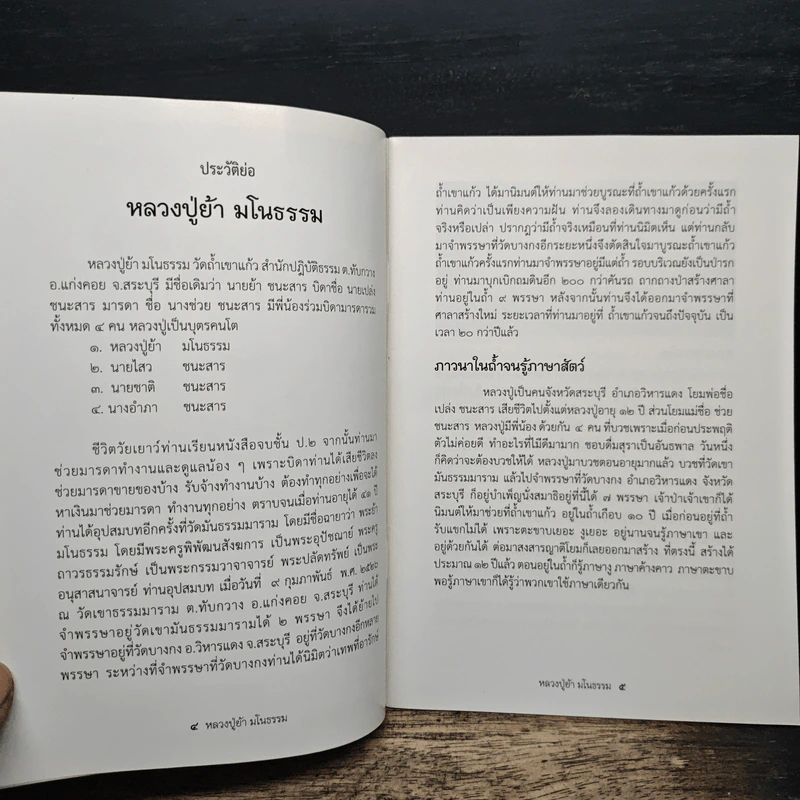 ประวัติย่อ
หลวงปู่ย้า มโนธรรม
หลวงปู่ย้า มโนธรรม วัดถ้ำเขาแก้ว สำนักปฏิบัติธรรม ต.ทับกวาง
อ.แก่งคอย จ.สระบุรี มีชื่อเดิมว่า นายย้า ชนะสาร บิดาชื่อ นายเปล่ง
ชนะสาร มารดา ชื่อ นางช่วย ชนะสาร มีพี่น้องร่วมบิดามารดารวม
ทั้งหมด ๔ คน หลวงปู่เป็นบุตรคนโต
๑. หลวงปู่ย้า มโนธรรม
๒. นายไสว ชนะสาร
๓. นายชาติ ชนะสาร
๔. นางอำภา ชนะสาร
ชีวิตวัยเยาว์ท่านเรียนหนังสือจบชั้น ป.๒ จากนั้นท่านมา
ช่วยมารดาทำงานและดูแลน้อง ๆ เพราะบิดาท่านได้เสียชีวิตลง
ช่วยมารดาขายของบ้าง รับจ้างทำงานบ้าง ต้องทำทุกอย่างเพื่อจะได้
หาเงินมาช่วยมารดา ทำงานทุกอย่าง ตราบจนเมื่อท่านอายุได้ ๔๑ ปี
ท่านได้อุปสมบทอีกครั้งที่วัดมันธรรมาราม โดยมีชื่อฉายาว่า พระย้า
มโนธรรม โดยมีพระครูพิพัฒนสังฆการ เป็นพระอุปัชฌาย์ พระครู
ถาวรธรรมรักษ์ เป็นพระกรรมวาจาจารย์ พระปลัดทรัพย์ เป็นพระ
อนุสาสนาจารย์ ท่านอุปสมบท เมื่อวันที่ ๙ กุมภาพันธ์ พ.ศ. ๒๕๒๖
ณ วัดเขาธรรมมาราม ต.ทับกวาง อ.แก่งคอย จ.สระบุรี ท่านได้
จำพรรษาอยู่วัดเขามันธรรมมารามได้ ๒ พรรษา จึงได้ย้ายไป
จำพรรษาอยู่ที่วัดบางกง อ.วิหารแดง จ.สระบุรี อยู่ที่วัดบางกงอีกหลาย
พรรษา ระหว่างที่จำพรรษาที่วัดบางกงท่านได้นิมิตว่าเทพที่อารักษ์
๔ หลวงปู่ย้า มโนธรรม
ถ้ำเขาแก้ว ได้มานิมนต์ให้ท่านมาช่วยบูรณะที่ถ้ำเขาแก้วด้วยครั้งแรก
ท่านคิดว่าเป็นเพียงความฝัน ท่านจึงลองเดินทางมาดูก่อนว่ามีถ้ำ
จริงหรือเปล่า ปรากฏว่ามีถ้ำจริงเหมือนที่ท่านนิมิตเห็น แต่ท่านกลับ
มาจำพรรษาที่วัดบางกงอีกระยะหนึ่งจึงตัดสินใจมาบูรณะถ้ำเขาแก้ว
ถ้ำเขาแก้วครั้งแรกท่านมาจำพรรษาอยู่มีแต่ถ้ำ รอบบริเวณยังเป็นป่ารก
อยู่ ท่านมาบุกเบิกถมดินอีก ๒๐๐ กว่าคันรถ ถากถางป่าสร้างศาลา
ท่านอยู่ในถ้ำ ๙ พรรษา หลังจากนั้นท่านจึงได้ออกมาจำพรรษาที่
ศาลาสร้างใหม่ ระยะเวลาที่ท่านมาอยู่ที่ ถ้ำเขาแก้วจนถึงปัจจุบัน เป็น
เวลา ๒๐ กว่าปีแล้ว
ภาวนาในถ้ำจนรู้ภาษาสัตว์
หลวงปู่เป็นคนจังหวัดสระบุรี อำเภอวิหารแดง โยมพ่อชื่อ
เปล่ง ชนะสาร เสียชีวิตไปตั้งแต่หลวงปู่อายุ ๑๒ ปี ส่วนโยมแม่ชื่อ ช่วย
ชนะสาร หลวงปู่มีพี่น้อง ด้วยกัน ๔ คน ที่บวชเพราะเมื่อก่อนประพฤติ
ตัวไม่ค่อยดี ทำอะไรที่ไม่ดีมามาก ชอบดื่มสุราเป็นอันธพาล วันหนึ่ง
ก็คิดว่าจะต้องบวชให้ได้ หลวงปู่มาบวชตอนอายุมากแล้ว บวชที่วัดเขา
มันธรรมมาราม แล้วไปจำพรรษาที่วัดบางกง อำเภอวิหารแดง จังหวัด
สระบุรี ก็อยู่บำเพ็ญนั่งสมาธิอยู่ที่นี้ได้ ๗ พรรษา เจ้าป่าเจ้าเขาก็ได้
นิมนต์ให้มาช่วยที่ถ้ำเขาแก้ว อยู่ในถ้ำเกือบ ๑๐ ปี เมื่อก่อนอยู่ที่ถ้ำ
รับแขกไม่ได้ เพราะตะขาบเยอะ งูเยอะ อยู่นานจนรู้ภาษาเขา และ
อยู่ด้วยกันได้ ต่อมาสงสารญาติโยมก็เลยออกมาสร้าง ที่ตรงนี้ สร้างได้
ประมาณ ๑๒ ปีแล้ว ตอนอยู่ในถ้ำก็รู้ภาษางู ภาษาค้างคาว ภาษาตะขาบ
พอรู้ภาษาเขาก็ได้รู้ว่าพวกเขาใช้ภาษาเดียวกัน
หลวงปู่ย้า มโนธรรม ๕